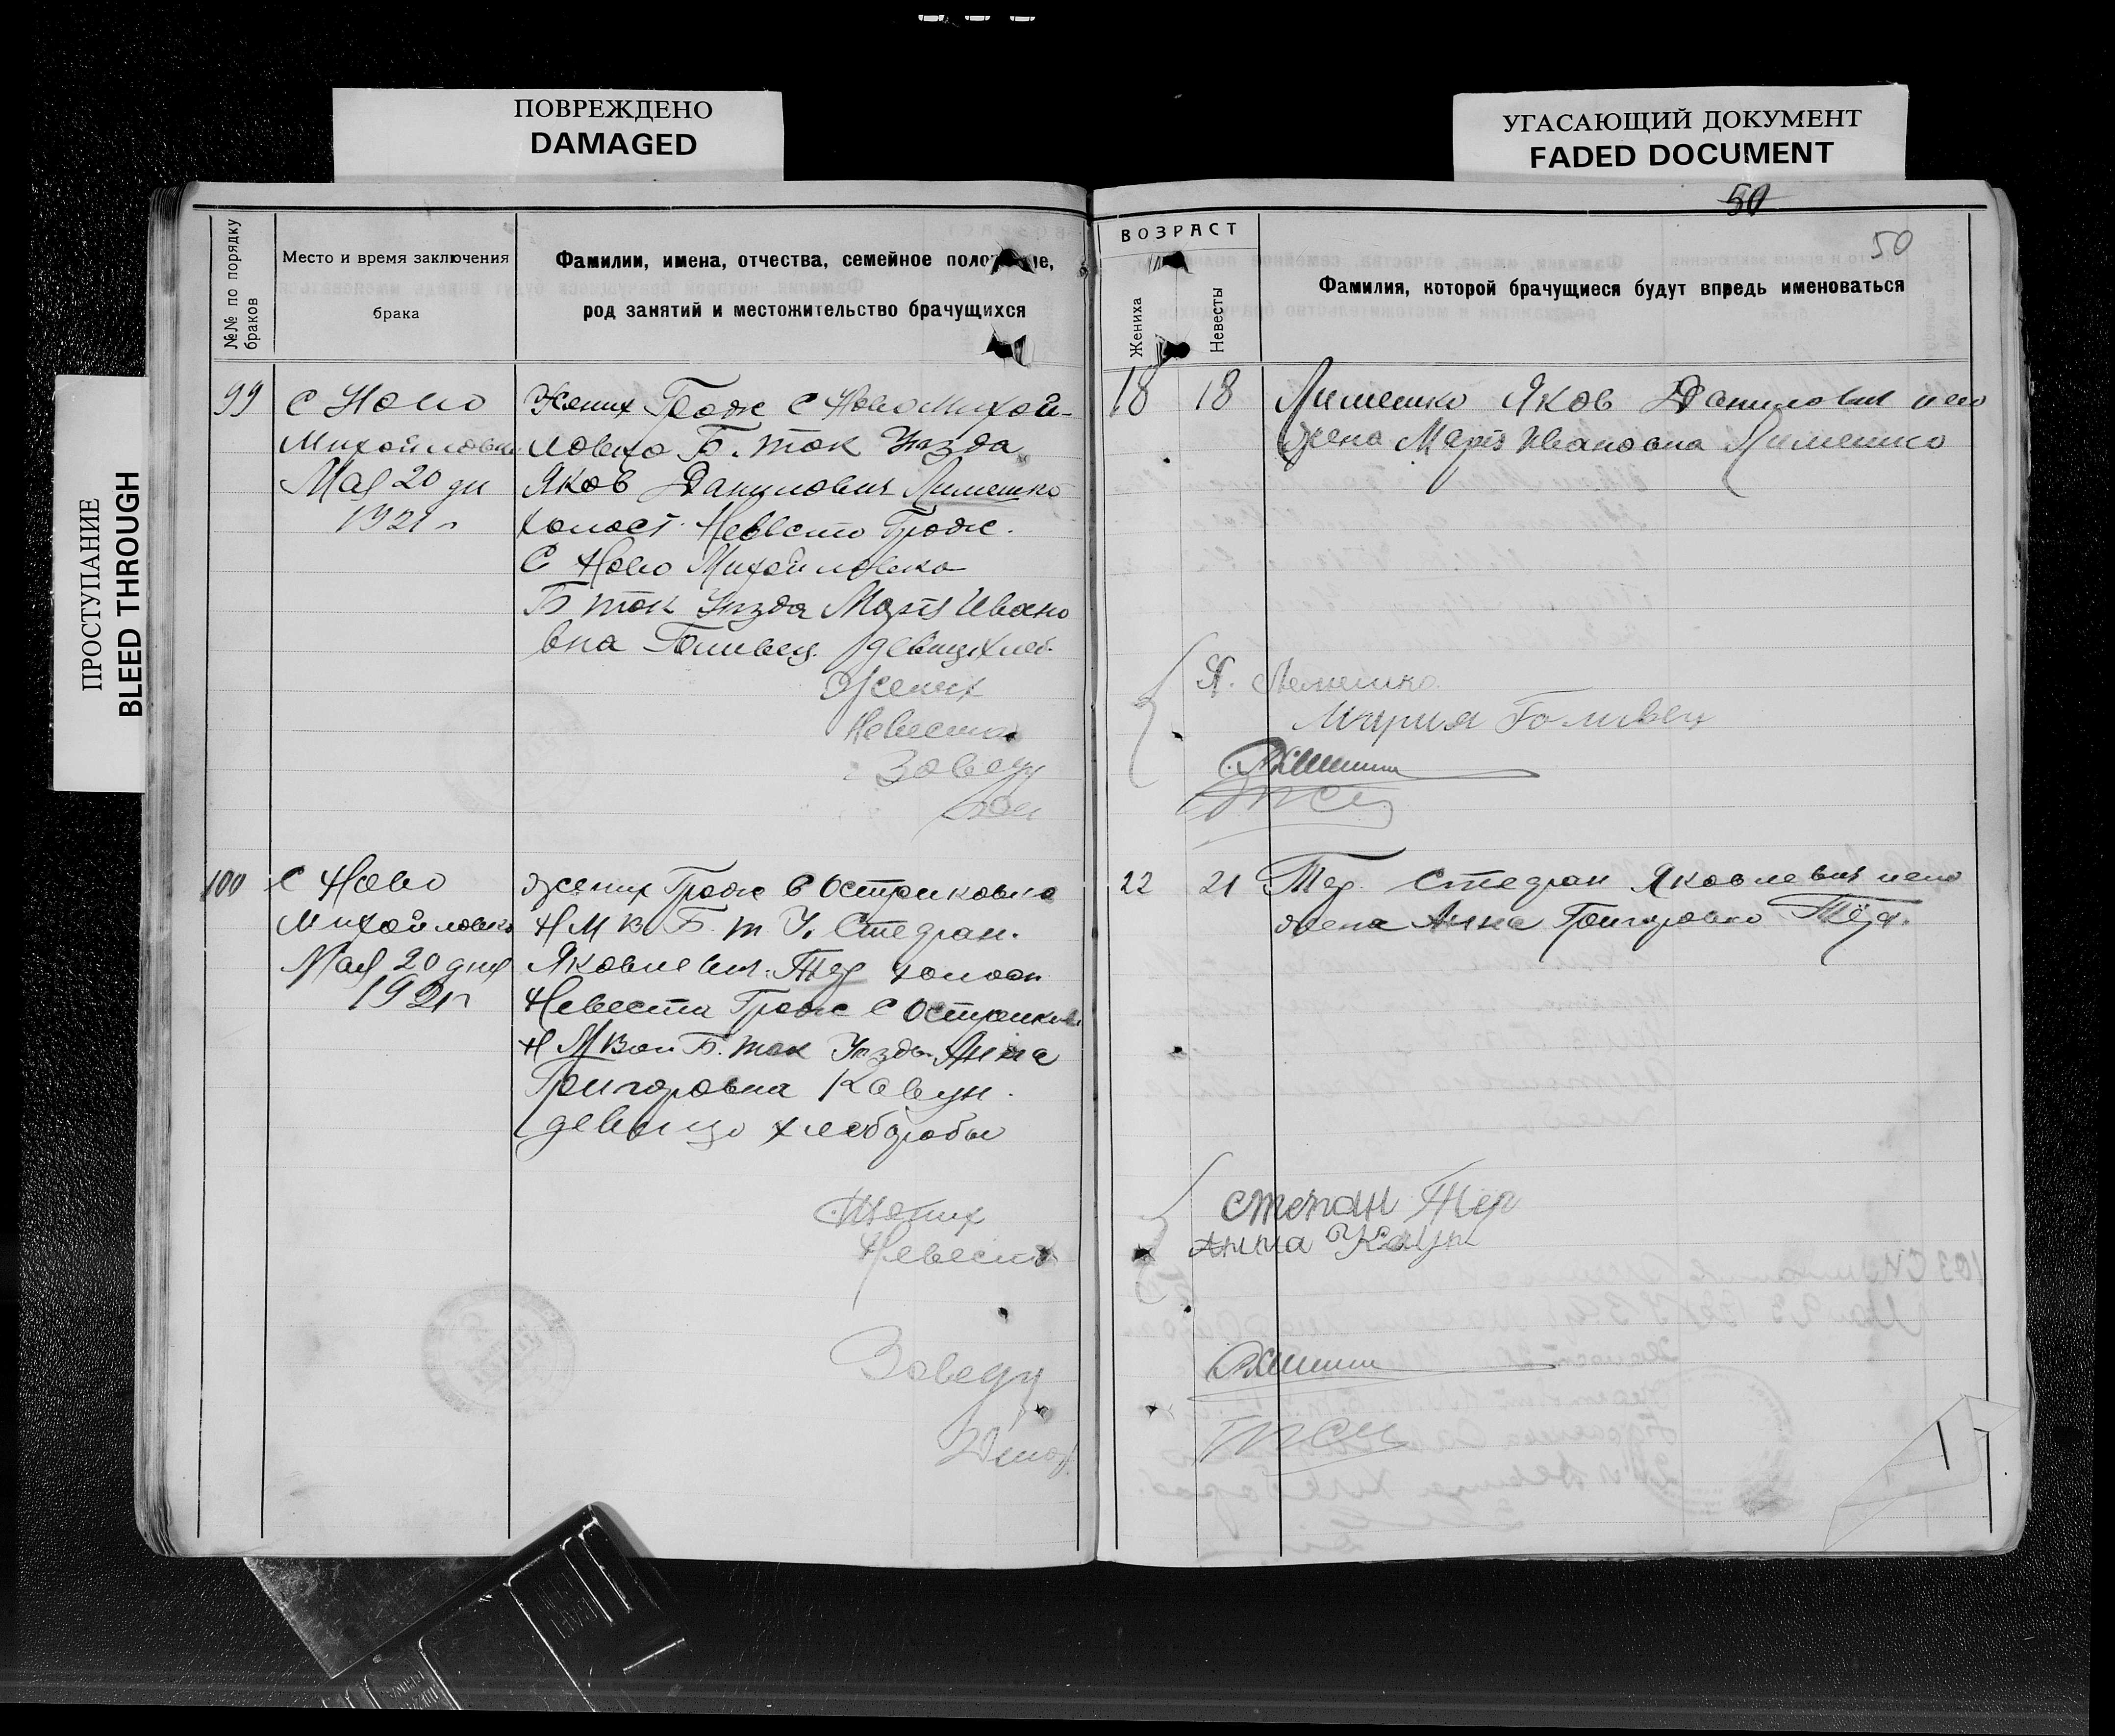 ПОВРЕЖДЕНО
DAMAGED
УГАСАЮЩИЙ ДОКУМЕНТ
FADED DOCUMENT
ПРОСТУПАНИЕ
BLEED THROUGH
50
50
№№ по порядку браков
Место и время заключения
брака
Фамилии, имена, отчества, семейное поло
ие,
род занятий и местожительство брачущихся
ВОЗРАСТ
Жениха
Невесты
Фамилия, которой брачущиеся будут впредь именоваться
99
С Ново
Михойловка
Мая 20 дн
1921 г
Жених Грож С Ново Михой-
ловка Б. ток Уезда
Яков Данилович Лимешко
холост. Невеста Грож.
С Ново Михойловка
Б ток Уезда Марія Ивано
вна Голивец девица хлеб.
Жених
Невеста
Заведу
18
18
Лимешко Яков Данилович его
жена Марія Ивановна Лимешко
Я. Лемешко
Мария Голивец
100
С Ново
Михойловка
Мая 20 дня
1921 г
Жених Грож С Остриковка
Н М В Б. т У. Стефан.
Яковлевич Тер холост
Невеста Грож С Остриковк
Н М Вол Б. ток Уезда Анна
Григоровна Кавун.
девица хлеборобы
Жених
Невеста
Заведу
22
21
Тер. Стефан Яковлевич его
жена Анна Григоровна Тёр.
Степан Тер
Анна Каун